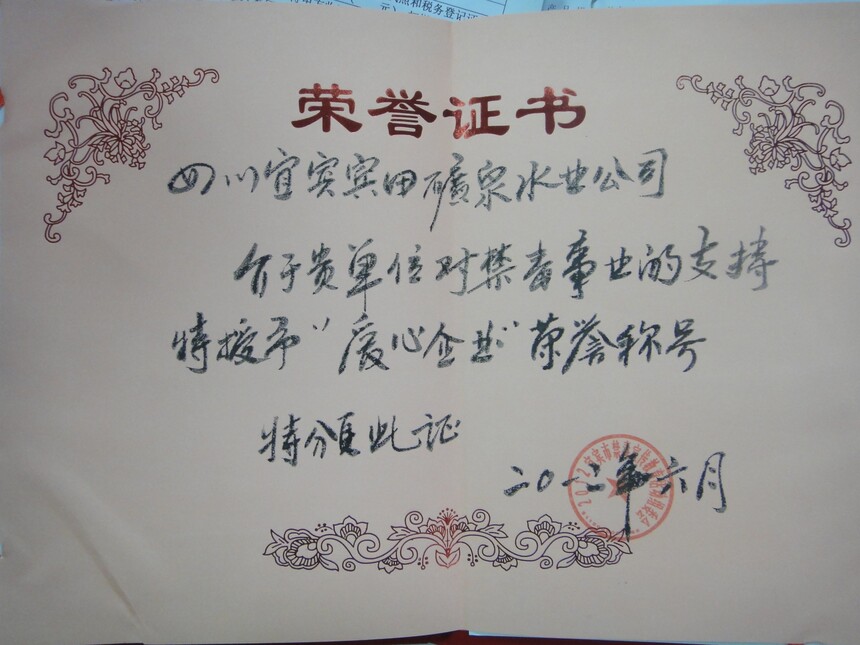 荣誉证书
四川宜宾宾田礦泉水业公司
介于贵单位对禁毒事业的支持
特授予“爱心企业”荣誉称号
特颁此证
二0一二年六月